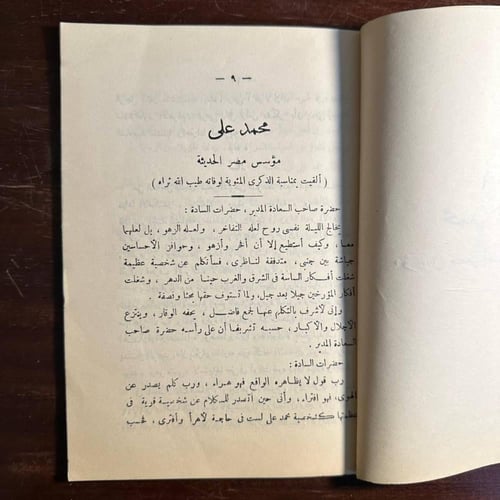 — ٩ —
محمد على
مؤسس مصر الحديثة
( ألقيت بمناسبة الذكرى المئوية لوفاته طيب الله ثراه )
حضرة صاحب السعادة المدير ، حضرات السادة :
يخالج الليلة نفسى روح لعله التفاخر ، ولعله الزهو ، بل لعلهما
معا ، وكيف أستطيع إلا أن أفخر وأزهو ، وحوافز الأحاسيس
جياشة بين جنبى ، متدفقة لناظرى ، فسأتكلم عن شخصية عظيمة
شغلت أفكار الساسة فى الشرق والغرب حينا من الدهر ، وشغلت
أفكار المؤرخين جيلا بعد جيل ، ولما تستوف حقها بحثا ونصفة .
وإنى لأشرف بالتكلم عنها لجمع فاضل ، يحفه الوقار ، وينتزع
الاجلال والاكبار ، حسبه تشريفا أن على رأسه حضرة صاحب
السعادة المدير .
حضرات السادة :
رب قول لا يظاهره الواقع فهو هراء ، ورب كلم يصدر عن
الهوى ، فهو افتراء ، وأنى حين أتصدر للكلام عن شخصية قوية فى
عظمتها كشخصية محمد على لست فى حاجة لأهرأ وأفترى ، فحسب